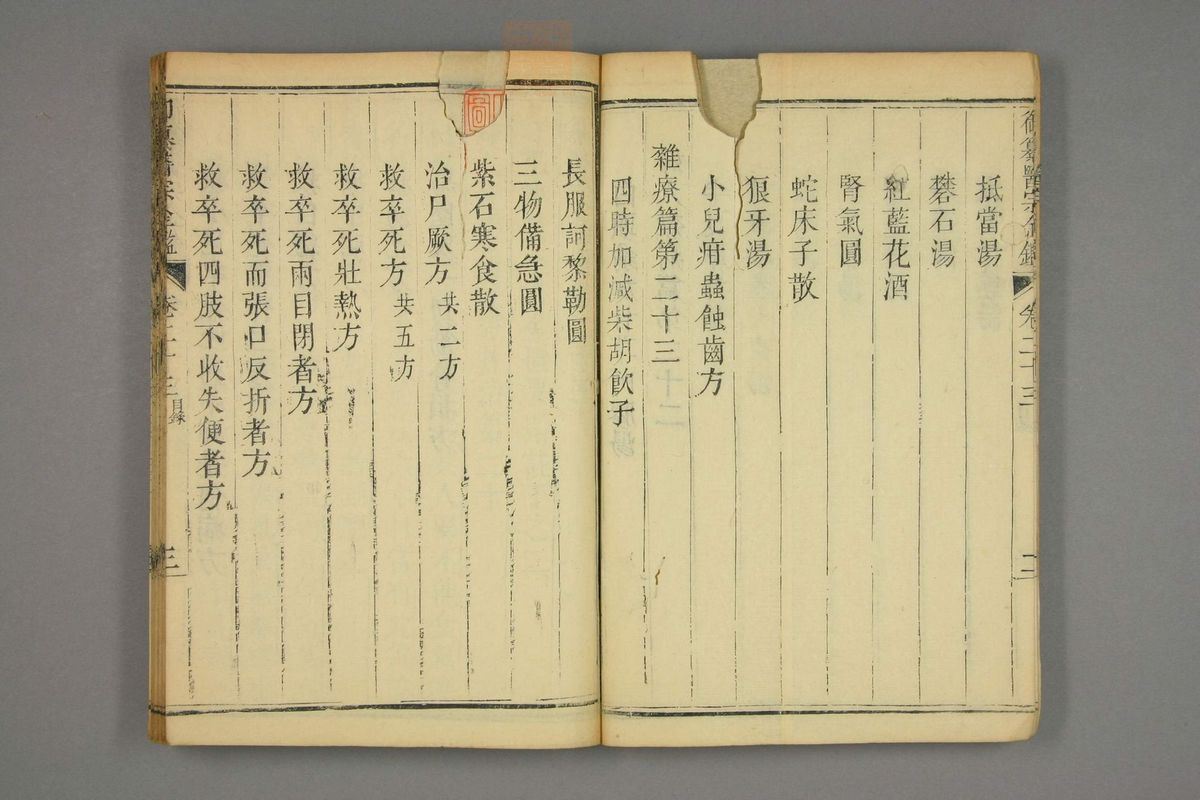 御纂醫宗金鑑 卷二十三 二
抵當湯
礬石湯
紅藍花酒
腎氣圓
蛇床子散
狼牙湯
小兒疳蟲蝕齒方
雜療篇第二十三
四時加減柴胡飲子
長服訶黎勒圓
三物備急圓
紫石寒食散
治尸厥方 共二方
救卒死方 共五方
救卒死壯熱方
救卒死兩目閉者方
救卒死而張口反折者方
救卒死四肢不收失便者方
醫宗金鑑 卷二十三 目錄 三
圖